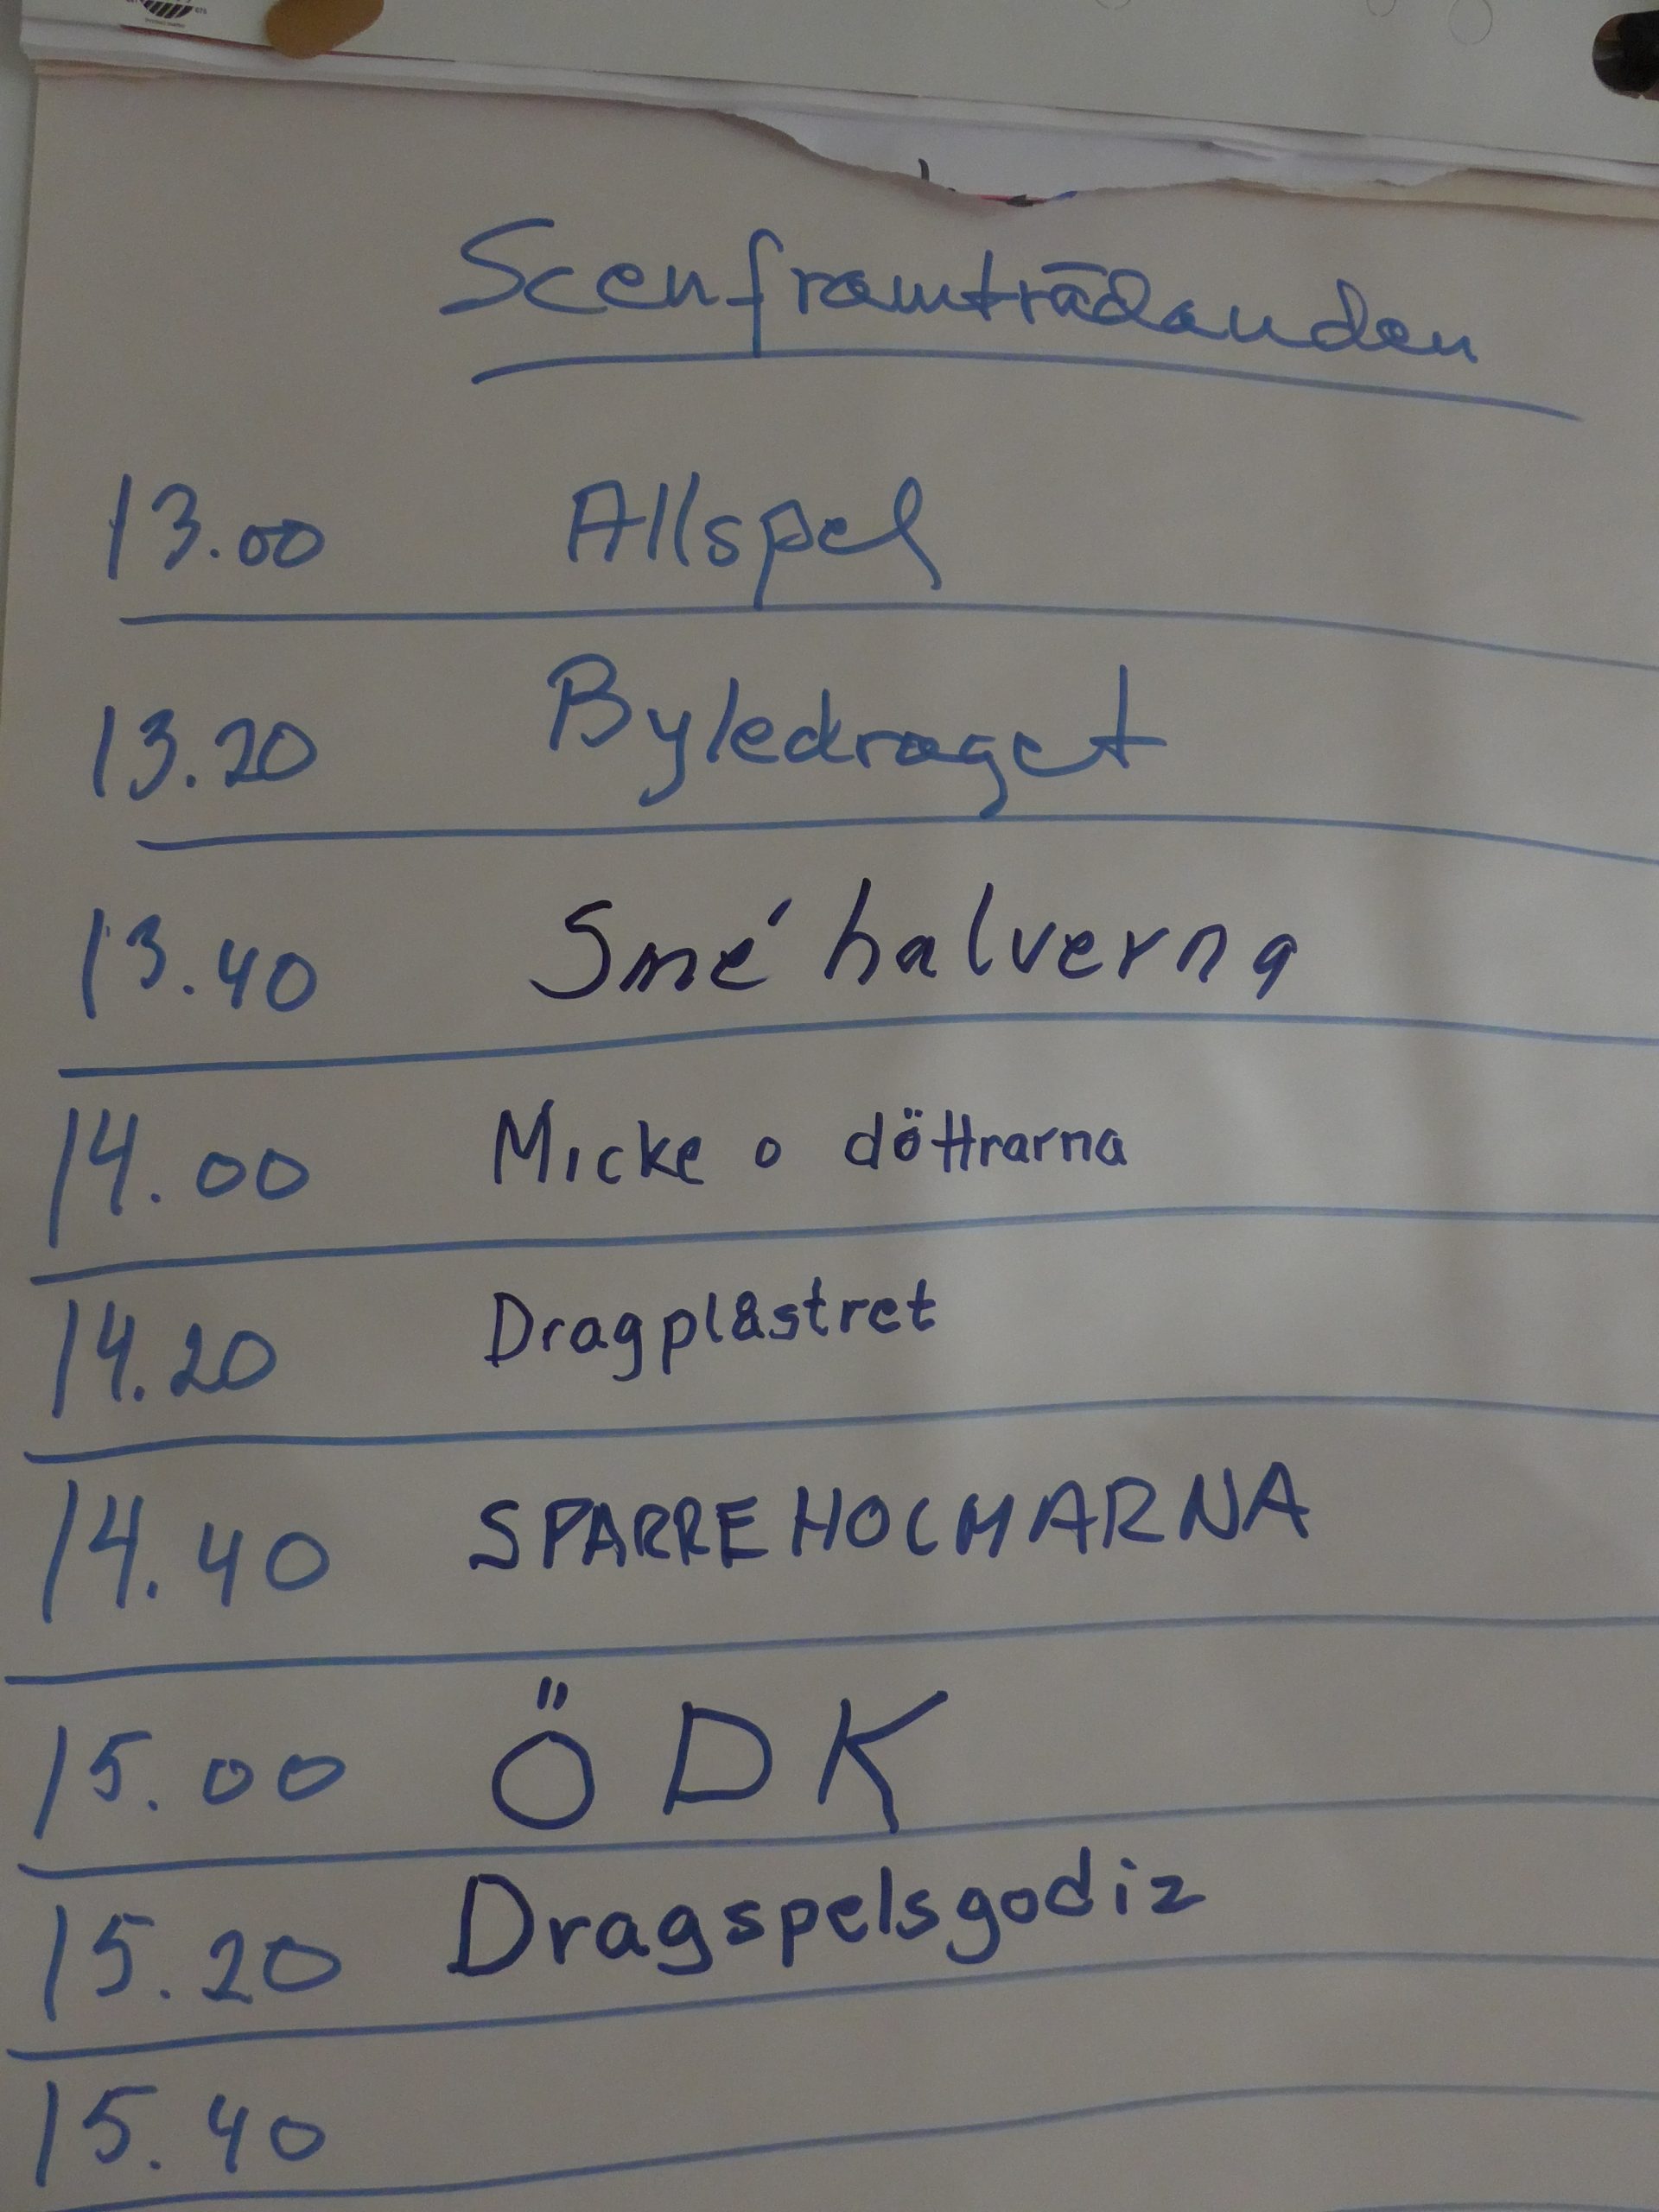 Scenframträdanden
13.00 Allspel
13.20 Byledraget
13.40 Smé halverna
14.00 Micke o döttrarna
14.20 Dragplåstret
14.40 SPARREHOLMARNA
15.00 ÖDK
15.20 Dragspelsgodiz
15.40